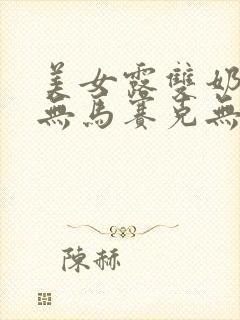 美女露雙奶
無馬賽克無
陳赫